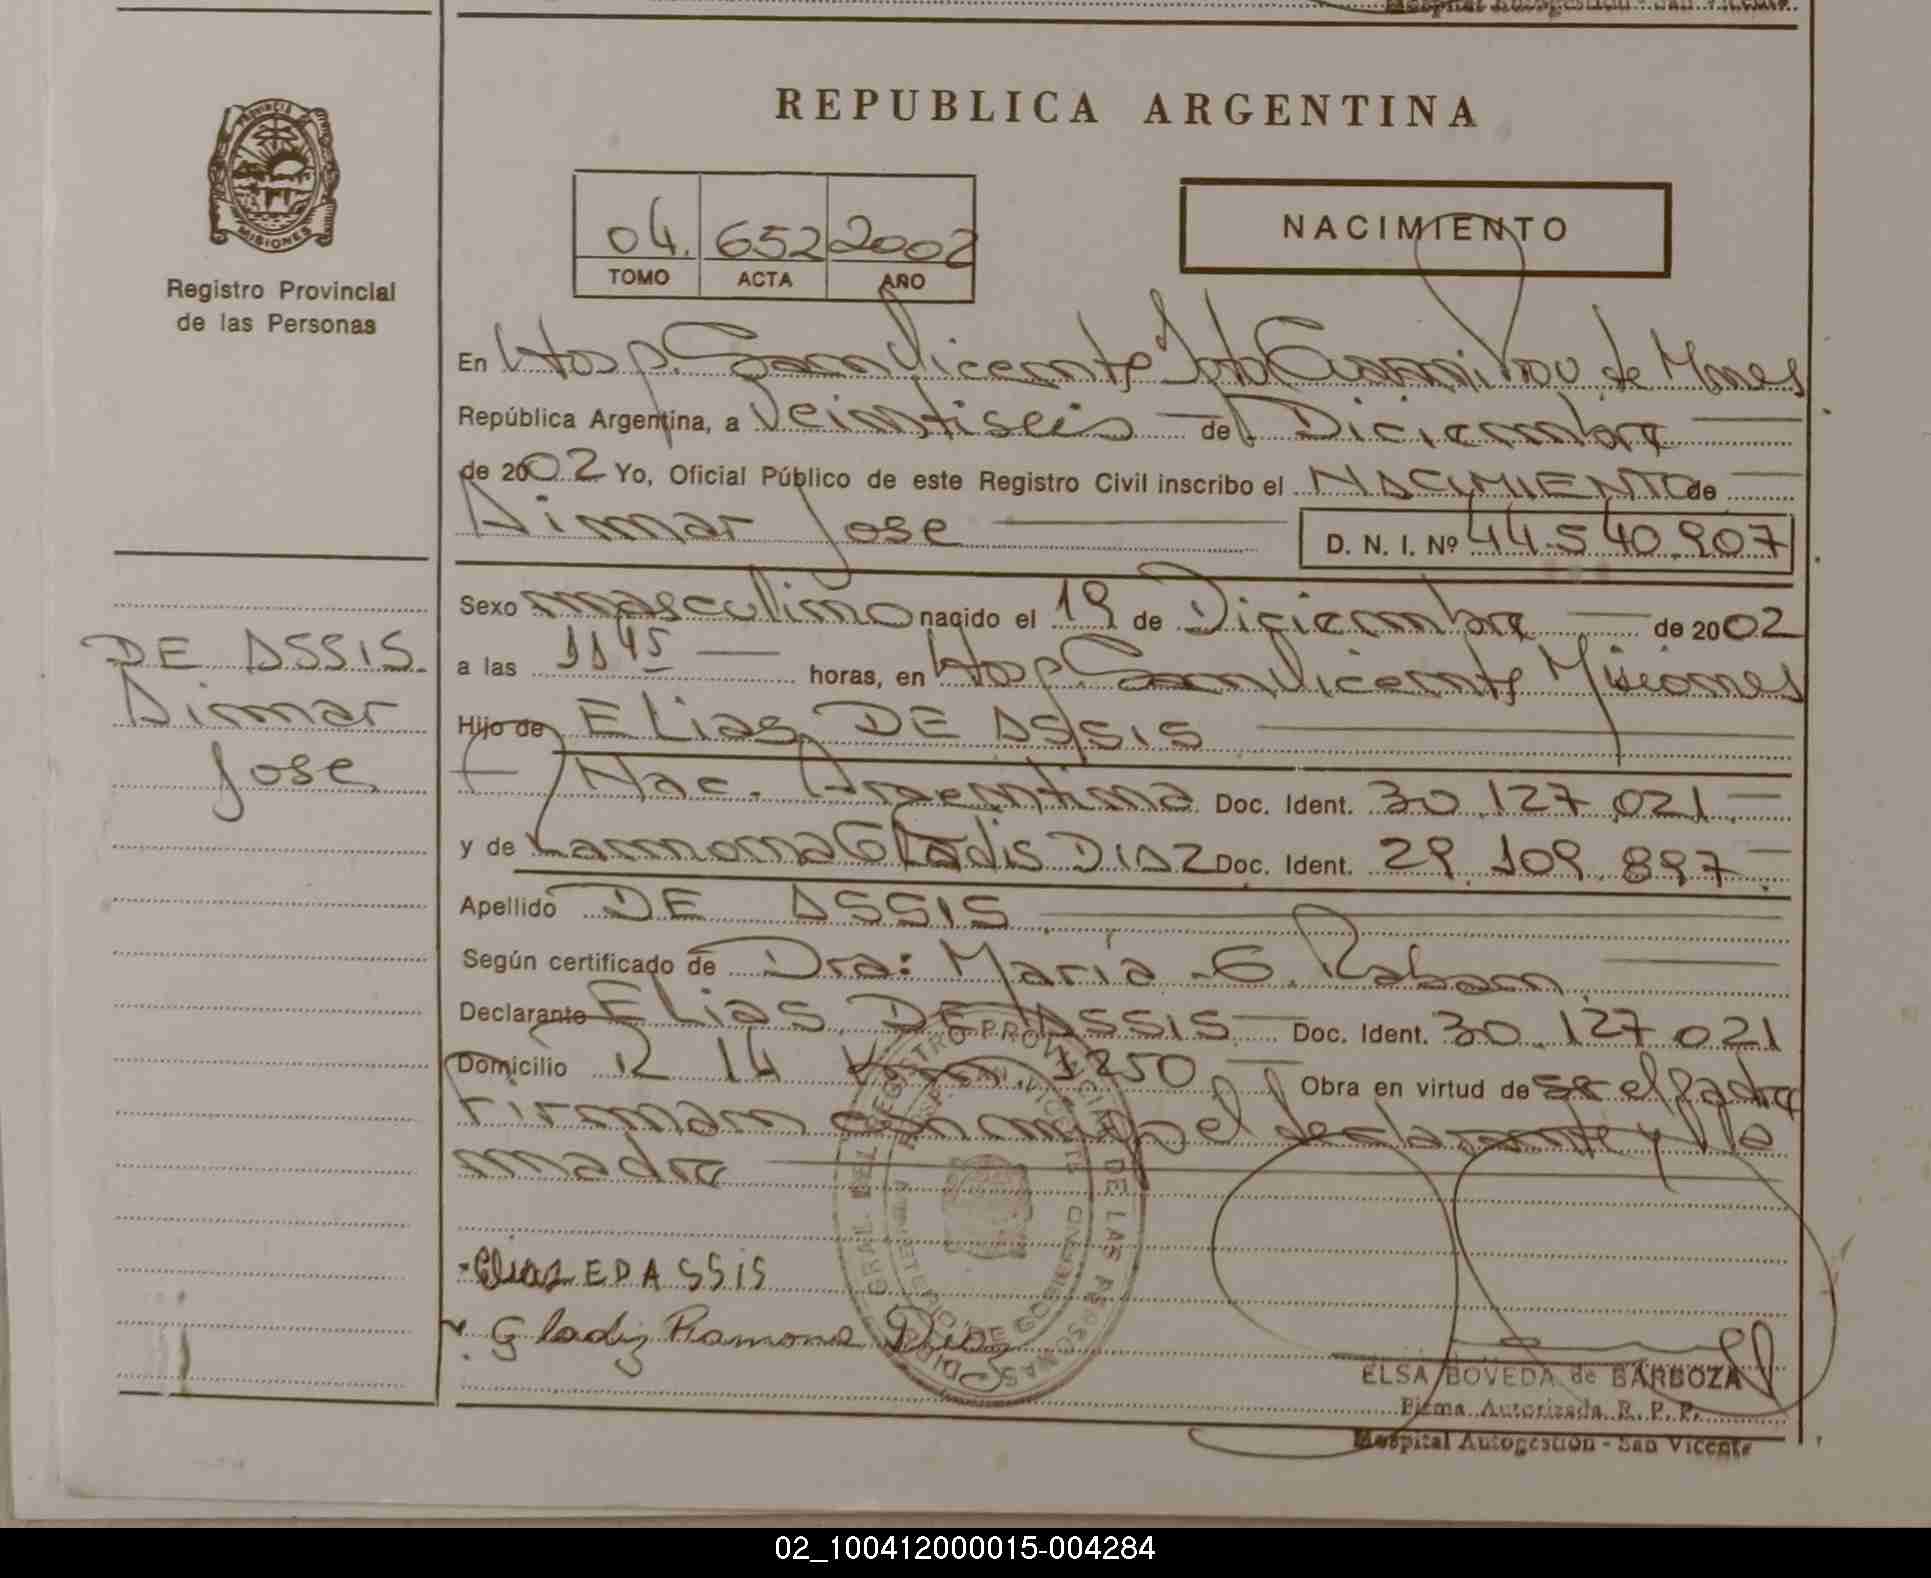 Hospital Autogestión - San Vicente
REPUBLICA ARGENTINA
PROVINCIA
MISIONES
Registro Provincial
de las Personas
04. 652 2002
TOMO ACTA AÑO
NACIMIENTO
En Hosp. San Vicente Dpto Guaraní Prov de Mnes
República Argentina, a Veintiseis de Diciembre
de 2002 Yo, Oficial Público de este Registro Civil inscribo el NACIMIENTO de
Dimar Jose D. N. I. Nº 44.540.907
Sexo masculino nacido el 19 de Diciembre de 2002
a las 1145 horas, en Hosp. San Vicente Misiones
Hijo de Elias DE ASSIS
Nac. Argentina Doc. Ident. 30.127.021
y de Ramona Gladis DIAZ Doc. Ident. 29.109.897
Apellido DE ASSIS
Según certificado de Dra: María G. Raban
Declarante Elias DE ASSIS Doc. Ident. 30.127.021
Domicilio R 14 Km 1250 Obra en virtud de ser el padre
Firman conmigo el declarante y la
madre
DE ASSIS
Dimar
Jose
Elias EDASSiS
Gladiz Ramona Diaz
ELSA BOVEDA de BARBOZA
Firma Autorizada R. P. P.
Hospital Autogestión - San Vicente
02_100412000015-004284